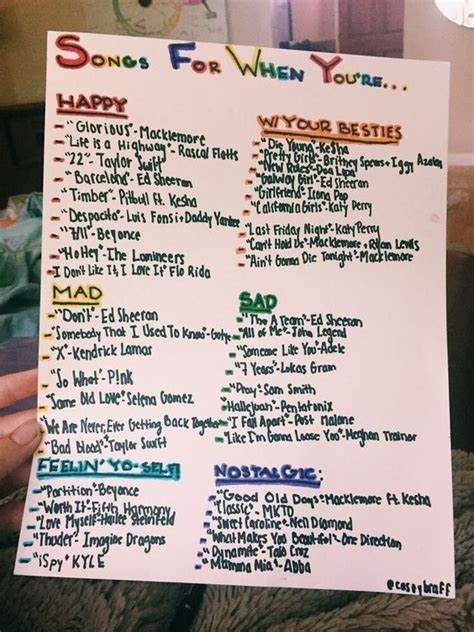 SONGS FOR WHEN YOU'RE...
HAPPY
-"Glorious"-Macklemore
-"Life is a Highway"-Rascal Flatts
-"22"-Taylor Swift
-"Barcelona"-Ed Sheeran
-"Timber"-Pitbull ft. Kesha
-"Despacito"-Luis Fonsi+Daddy Yankee
-"7/11"-Beyonce
-"Ho Hey"-The Lumineers
-I Don't Like It, I Love It" Flo Rida
W/ YOUR BESTIES
-"Die Young"-Ke$ha
-"Pretty Girls"-Britney Spears+Iggy Azalea
-"New Rules"-Dua Lipa
-"Galway Girl"-Ed Sheeran
-"Girlfriend"-Icona Pop
-"California Girls"-Katy Perry
-"Last Friday Night"-Katy Perry
-"Can't Hold Us"-Macklemore+Ryan Lewis
-"Ain't Gonna Die Tonight"-Macklemore
MAD
-"Don't"-Ed Sheeran
-"Somebody That I Used To Know"-Gotye
-"X"-Kendrick Lamar
-"So What"-P!nk
-"Same Old Love"-Selena Gomez
-"We Are Never, Ever Getting Back Together"
-"Bad Blood"-Taylor Swift
SAD
-"The A Team"-Ed Sheeran
-"All of Me"-John Legend
-"Someone Like You"-Adele
-"7 Years"-Lukas Gram
-"Pray"-Sam Smith
-"Hallelujah"-Pentatonix
-"I Fall Apart"-Post Malone
-"Like I'm Gonna Loose You"-Meghan Trainor
FEELIN' YO-SELF
-"Partition"-Beyonce
-"Worth It"-Fifth Harmony
-"Love Myself"-Hailee Steinfeld
-"Thuder"-Imagine Dragons
-"iSpy" KYLE
NOSTALGIC:
-"Good Old Days"-Macklemore ft. Kesha
-"Classic"-MKTO
-"Sweet Caroline"-Neil Diamond
-"What Makes You Beautiful"-One Direction
-"Dynamite"-Taio Cruz
-"Mamma Mia"-Abba
@caseybraff